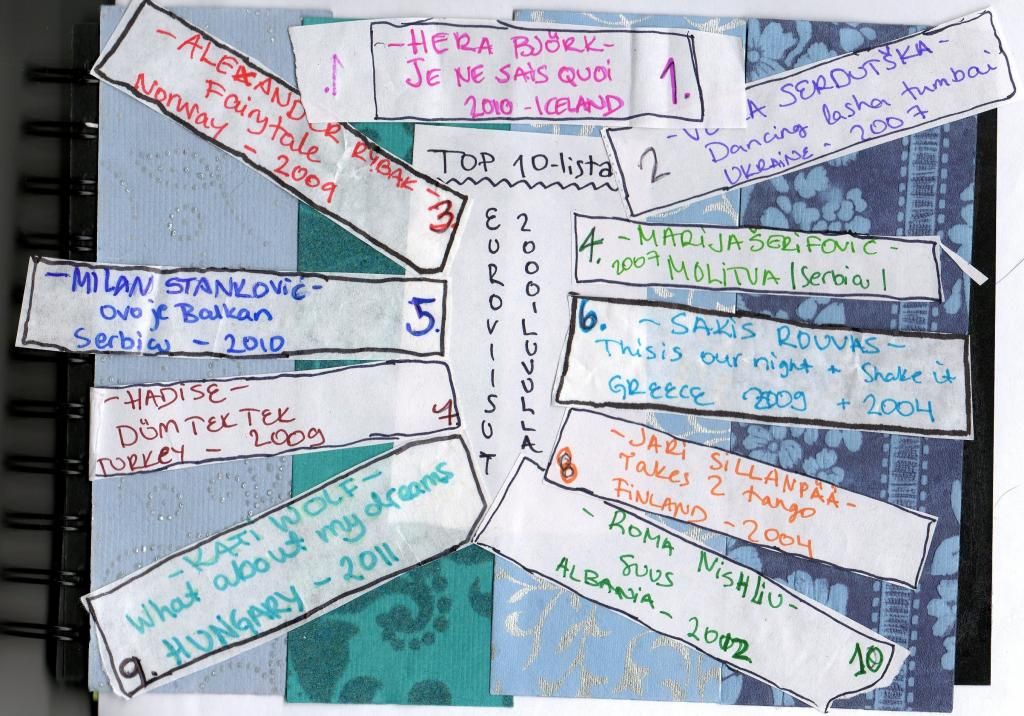 1. -HERA BJÖRK- 1.
JE NE SAIS QUOI
2010 - ICELAND
TOP 10-lista
EUROVIISUT
2000 LUVULLA
SERDUTŠKA-
Dancing lasha tumbai
UKRAINE - 2007
2
-ALEXANDER RYBAK-
Fairytale
Norway - 2009
3.
4. -MARIJA ŠERIFOVIĆ-
2007 MOLITVA |Serbia|
-MILAN STANKOVIĆ-
ovo je Balkan
Serbia - 2010
5.
6. -SAKIS ROUVAS-
This is our night + Shake it
GREECE 2009 + 2004
-HADISE-
DÜM TEK TEK
TURKEY - 2009
7
8 -JARI SILLANPÄÄ-
Takes 2 tango
FINLAND - 2004
-KATI WOLF-
What about my dreams
HUNGARY - 2011
9.
-ROMA NISHLIU-
SUUS
ALBANIA - 2012
10